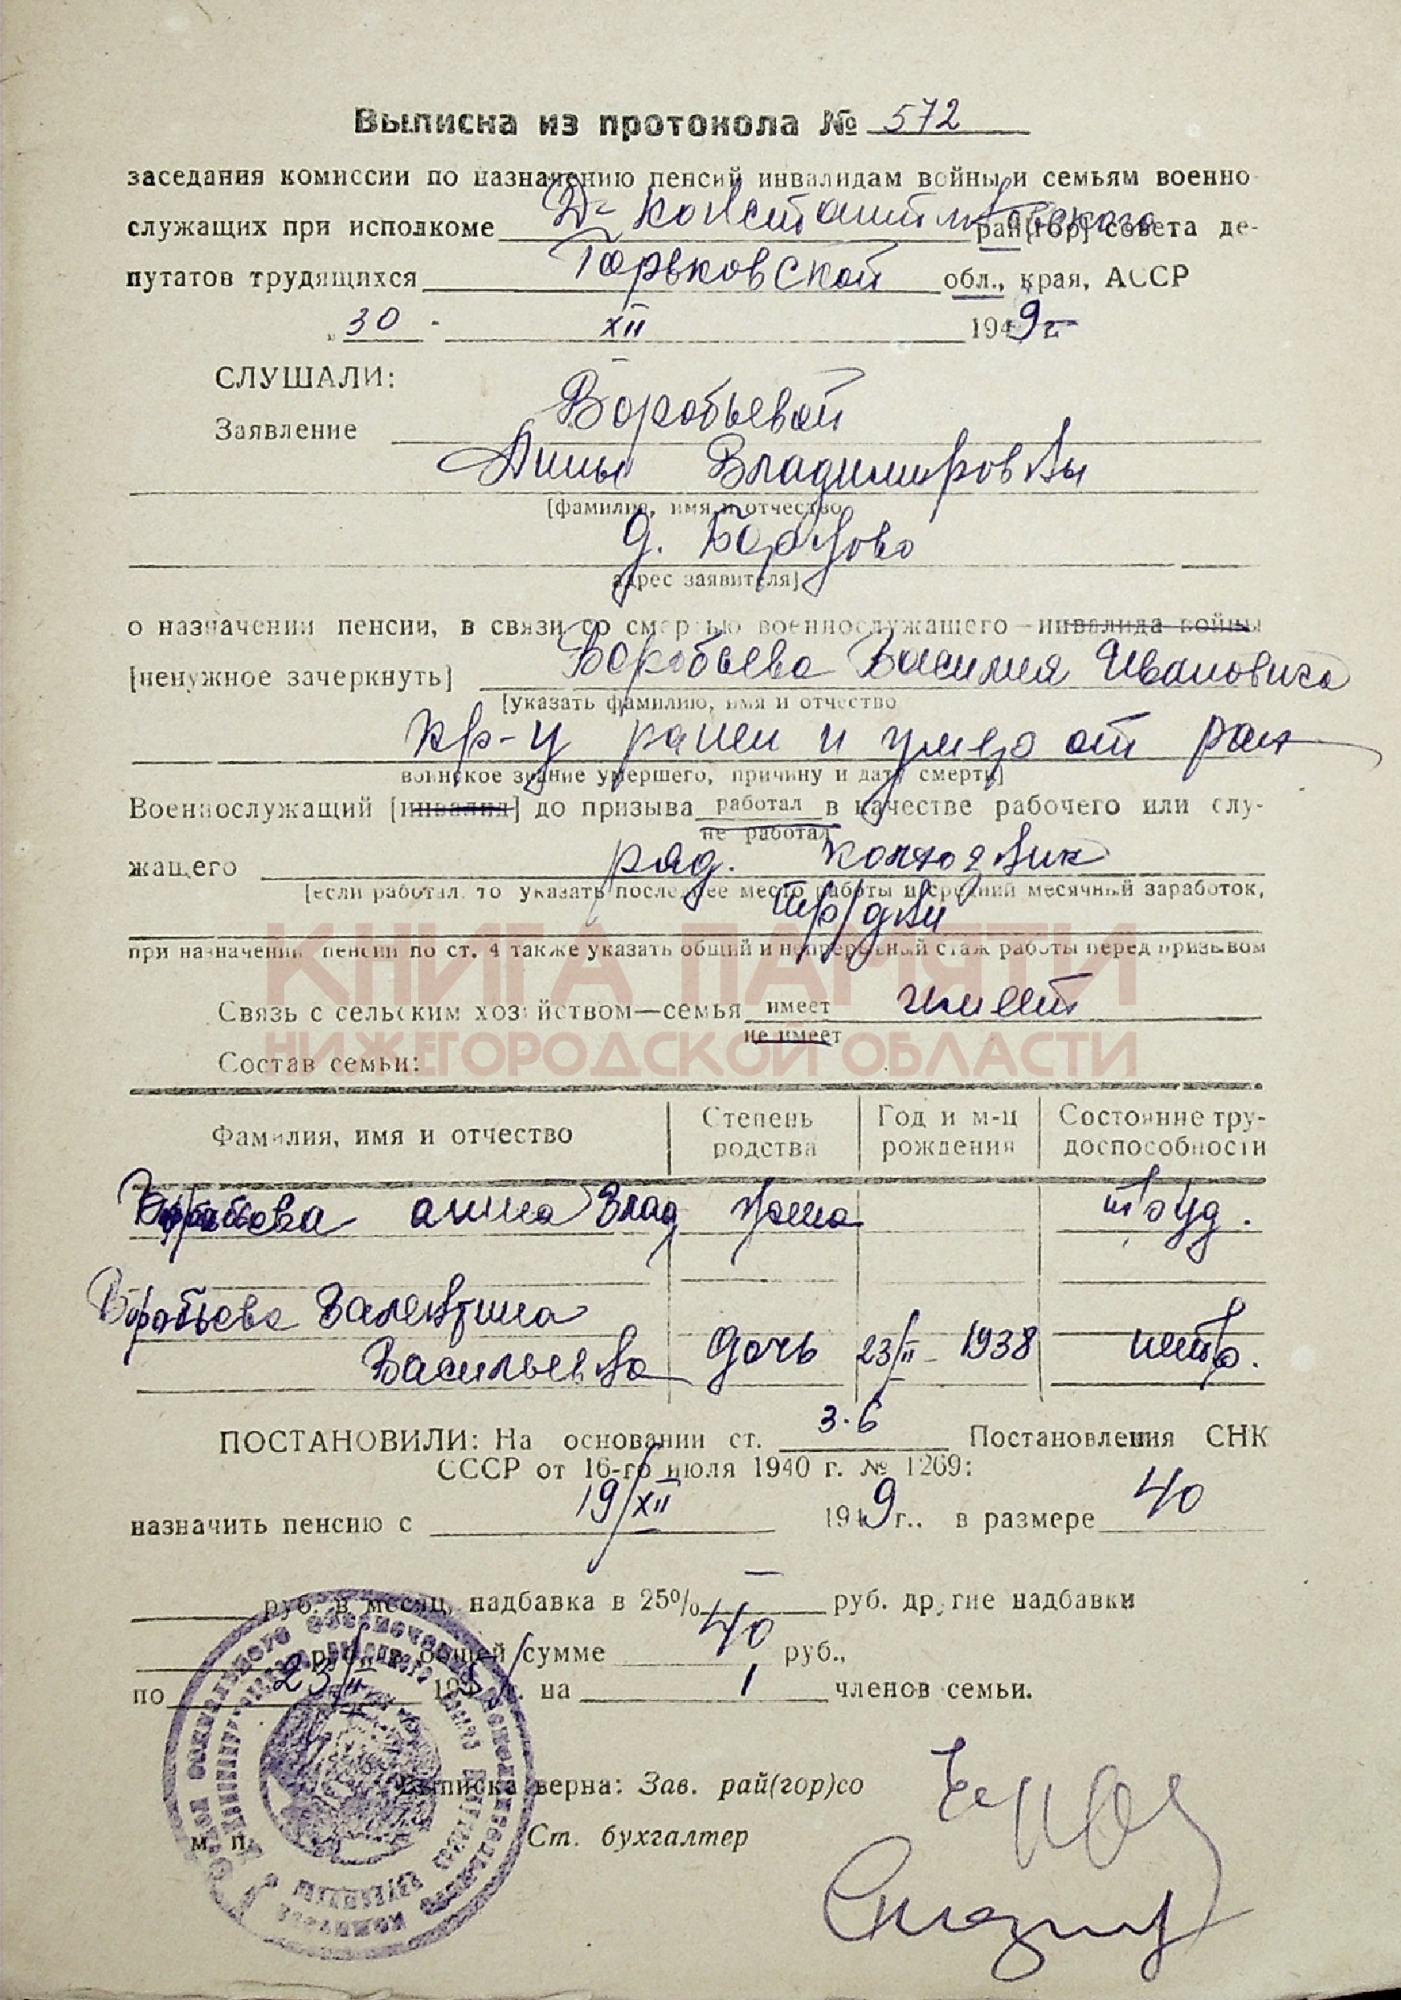 Выписка из протокола № 572
заседания комиссии по назначению пенсий инвалидам войны и семьям военно-
служащих при исполкоме Д-Константиновского рай[гор] совета де-
путатов трудящихся Горьковской обл., края, АССР
„30 - XII 1949г.
СЛУШАЛИ:
Заявление Воробьевой
Анны Владимировны
[фамилия, имя и отчество
д. Борцово
адрес заявителя]
о назначении пенсии, в связи со смертью военнослужащего—инвалида войны
[ненужное зачеркнуть] Воробьева Василия Ивановича
[указать фамилию, имя и отчество
кр-ц ранен и умер от ран
воинское звание умершего, причину и дату смерти]
Военнослужащий [инвалид] до призыва работал в качестве рабочего или слу-
не работал
жащего ряд. колхозник
[если работал, то указать последнее место работы и средний месячный заработок,
тр/дни
при назначении пенсии по ст. 4 также указать общий и непрерывный стаж работы перед призывом
КНИГА ПАМЯТИ
Связь с сельским хозяйством—семья имеет имеет
не имеет
НИЖЕГОРОДСКОЙ ОБЛАСТИ
Состав семьи:
Фамилия, имя и отчество Степень родства Год и м-ц рождения Состояние тру-доспособности
Воробьева Анна Влад жена труд.
Воробьева Валентина
Васильевна дочь 23/II- 1938 нетр.
ПОСТАНОВИЛИ: На основании ст. 3.6 Постановления СНК
СССР от 16-го июля 1940 г. № 1269:
назначить пенсию с 19/XII 1949г.. в размере 40
руб. в месяц, надбавка в 25% — руб. другие надбавки
руб., в общей сумме 40 руб.,
по 23/II 195 г. на 1 членов семьи.
Выписка верна: Зав. рай(гор)со
м. п. Ст. бухгалтер